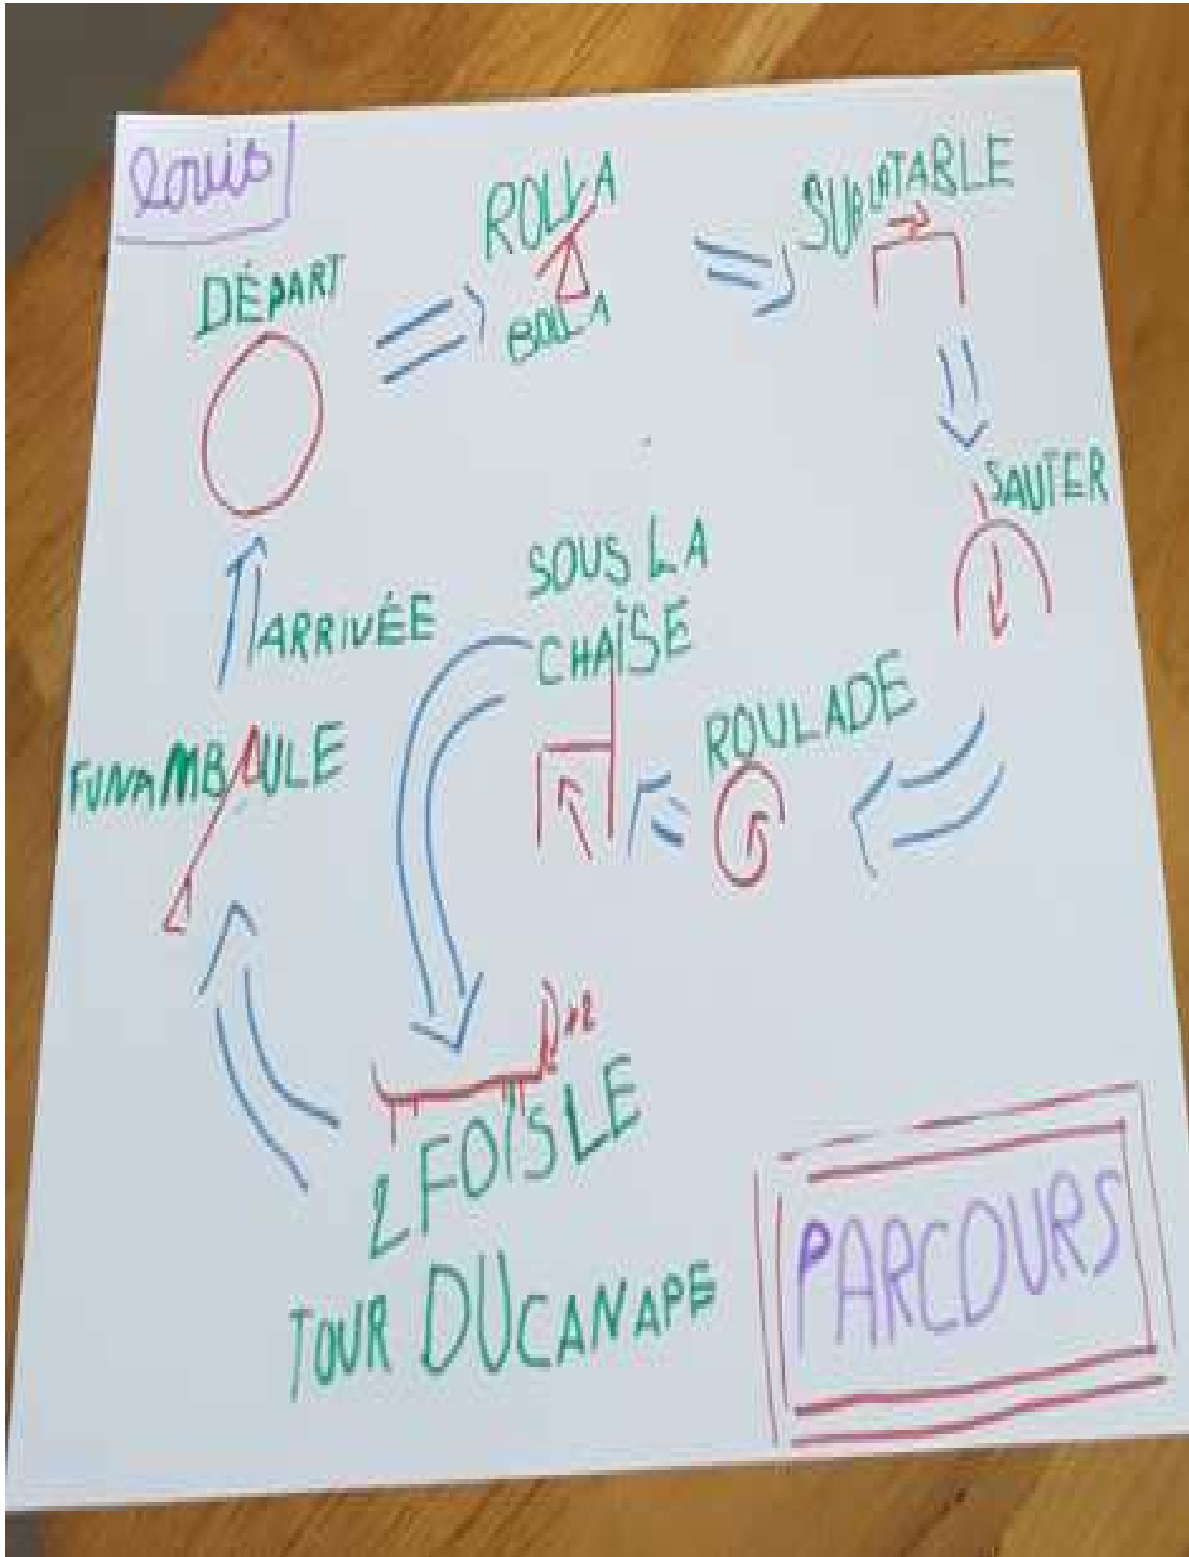 louis
DÉPART
ROLLA
BOLLA
SUR LA TABLE
SAUTER
ROULADE
SOUS LA
CHAÏSE
2 FOÏS LE
TOUR DU CANAPE
x2
FUNAMBULE
ARRIVÉE
PARCOURS